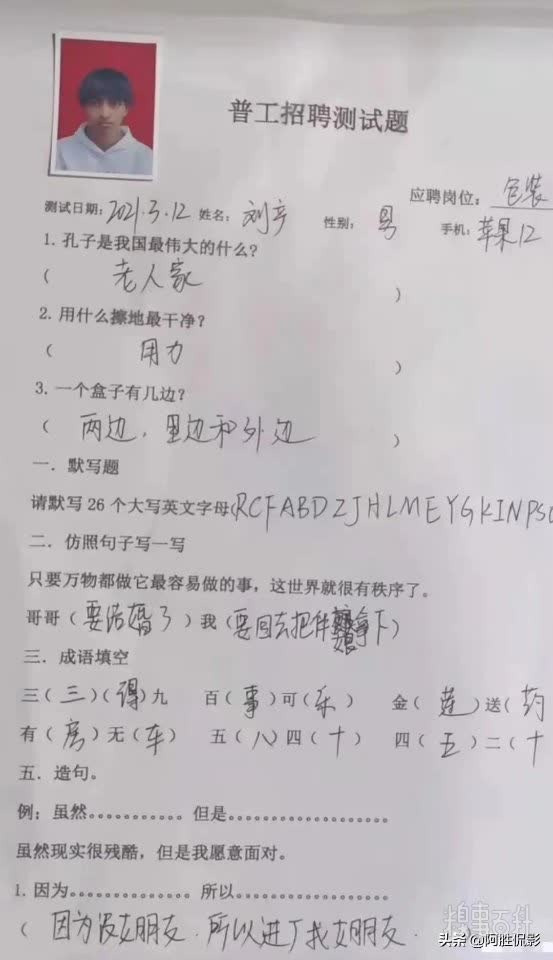 普工招聘测试题
应聘岗位: 包装
测试日期: 2021.3.12 姓名: 刘辛 性别: 男 手机: 苹果12
1. 孔子是我国最伟大的什么?
( 老人家 )
2. 用什么擦地最干净?
( 用力 )
3. 一个盒子有几边?
( 两边，里边和外边 )
一. 默写题
请默写 26 个大写英文字母(RCFABDZJHLMEYGKINPSO
二. 仿照句子写一写
只要万物都做它最容易做的事，这世界就很有秩序了。
哥哥(要结婚了)我(要回去把伴娘拿下)
三. 成语填空
三(三)(得)九 百(事)可(乐) 金(莲)送(药
有(房)无(车) 五(八)四(十) 四(五)二(十
五. 造句。
例: 虽然。。。。。。。。。。。 但是。。。。。。。。。。。。。。。。。
虽然现实很残酷，但是我愿意面对。
1. 因为。。。。。。。。。。。。 所以。。。。。。。。。。。。。。。
( 因为没女朋友，所以进厂找女朋友.
糗事百科
头条 @阿胜侃影